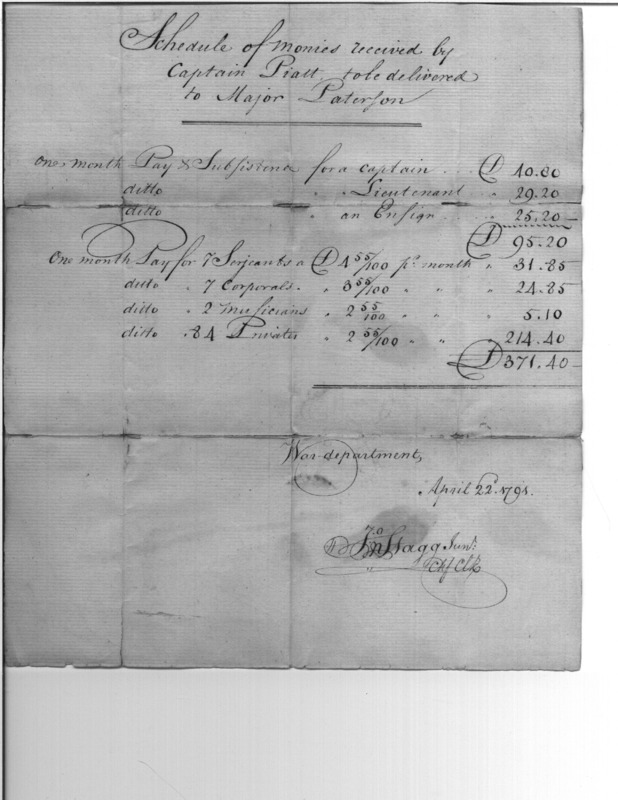 Schedule of monies received by
Captain Piatt, to be delivered
to Major Paterson
One month Pay & Subsistence for a Captain .. D 40.80
ditto " " Lieutenant .... " 29.20
ditto " an Ensign ..... " 25.20
D 95.20
One month Pay for 7 Serjeants a D 4 55/100 pr. month " 31.85
ditto " 7 Corporals. " 3 55/100 " " " 24.85
ditto " 2 Musicians " 2 55/100 " " " 5.10
ditto " 84 Privates " 2 55/100 " " " 214.40
D 371.40
War department,
April 22d. 1791.
Jn Stagg Junr.
Chf Clk